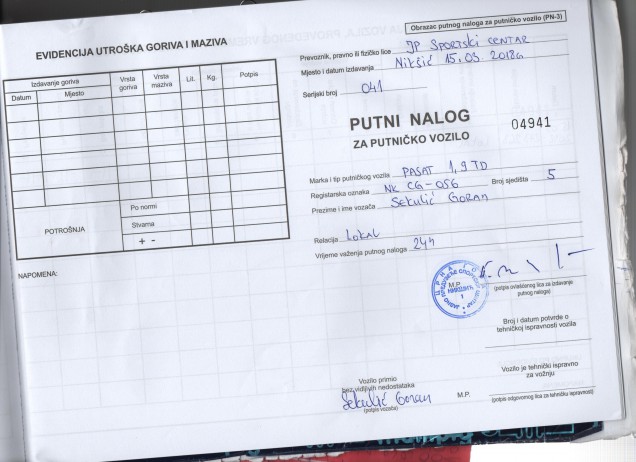 EVIDENCIJA UTROŠKA GORIVA I MAZIVA
Izdavanje goriva
Datum Mjesto
Vrsta goriva
Vrsta maziva
Lit.
Kg.
Potpis
POTROŠNJA
Po normi
Stvarna
+ -
NAPOMENA:
Obrazac putnog naloga za putničko vozilo (PN-3)
Prevoznik, pravno ili fizičko lice JP SPORTSKI CENTAR
Mjesto i datum izdavanja Nikšić 15.03.2018g
Serijski broj 041
PUTNI NALOG
ZA PUTNIČKO VOZILO
04941
Marka i tip putničkog vozila PASAT 1,9 TD
Registarska oznaka NK CG-056 Broj sjedišta 5
Prezime i ime vozača Sekulić Goran
Relacija Lokal
Vrijeme važenja putnog naloga 24h
M.P.
(potpis ovlašćenog lica za izdavanje
putnog naloga)
Broj i datum potvrde o
tehničkoj ispravnosti vozila
Vozilo primio
bez vidljivih nedostataka
Sekulić Goran
(potpis vozača)
M.P.
Vozilo je tehnički ispravno
za vožnju
(potpis odgovornog lica za tehničku ispravnost)